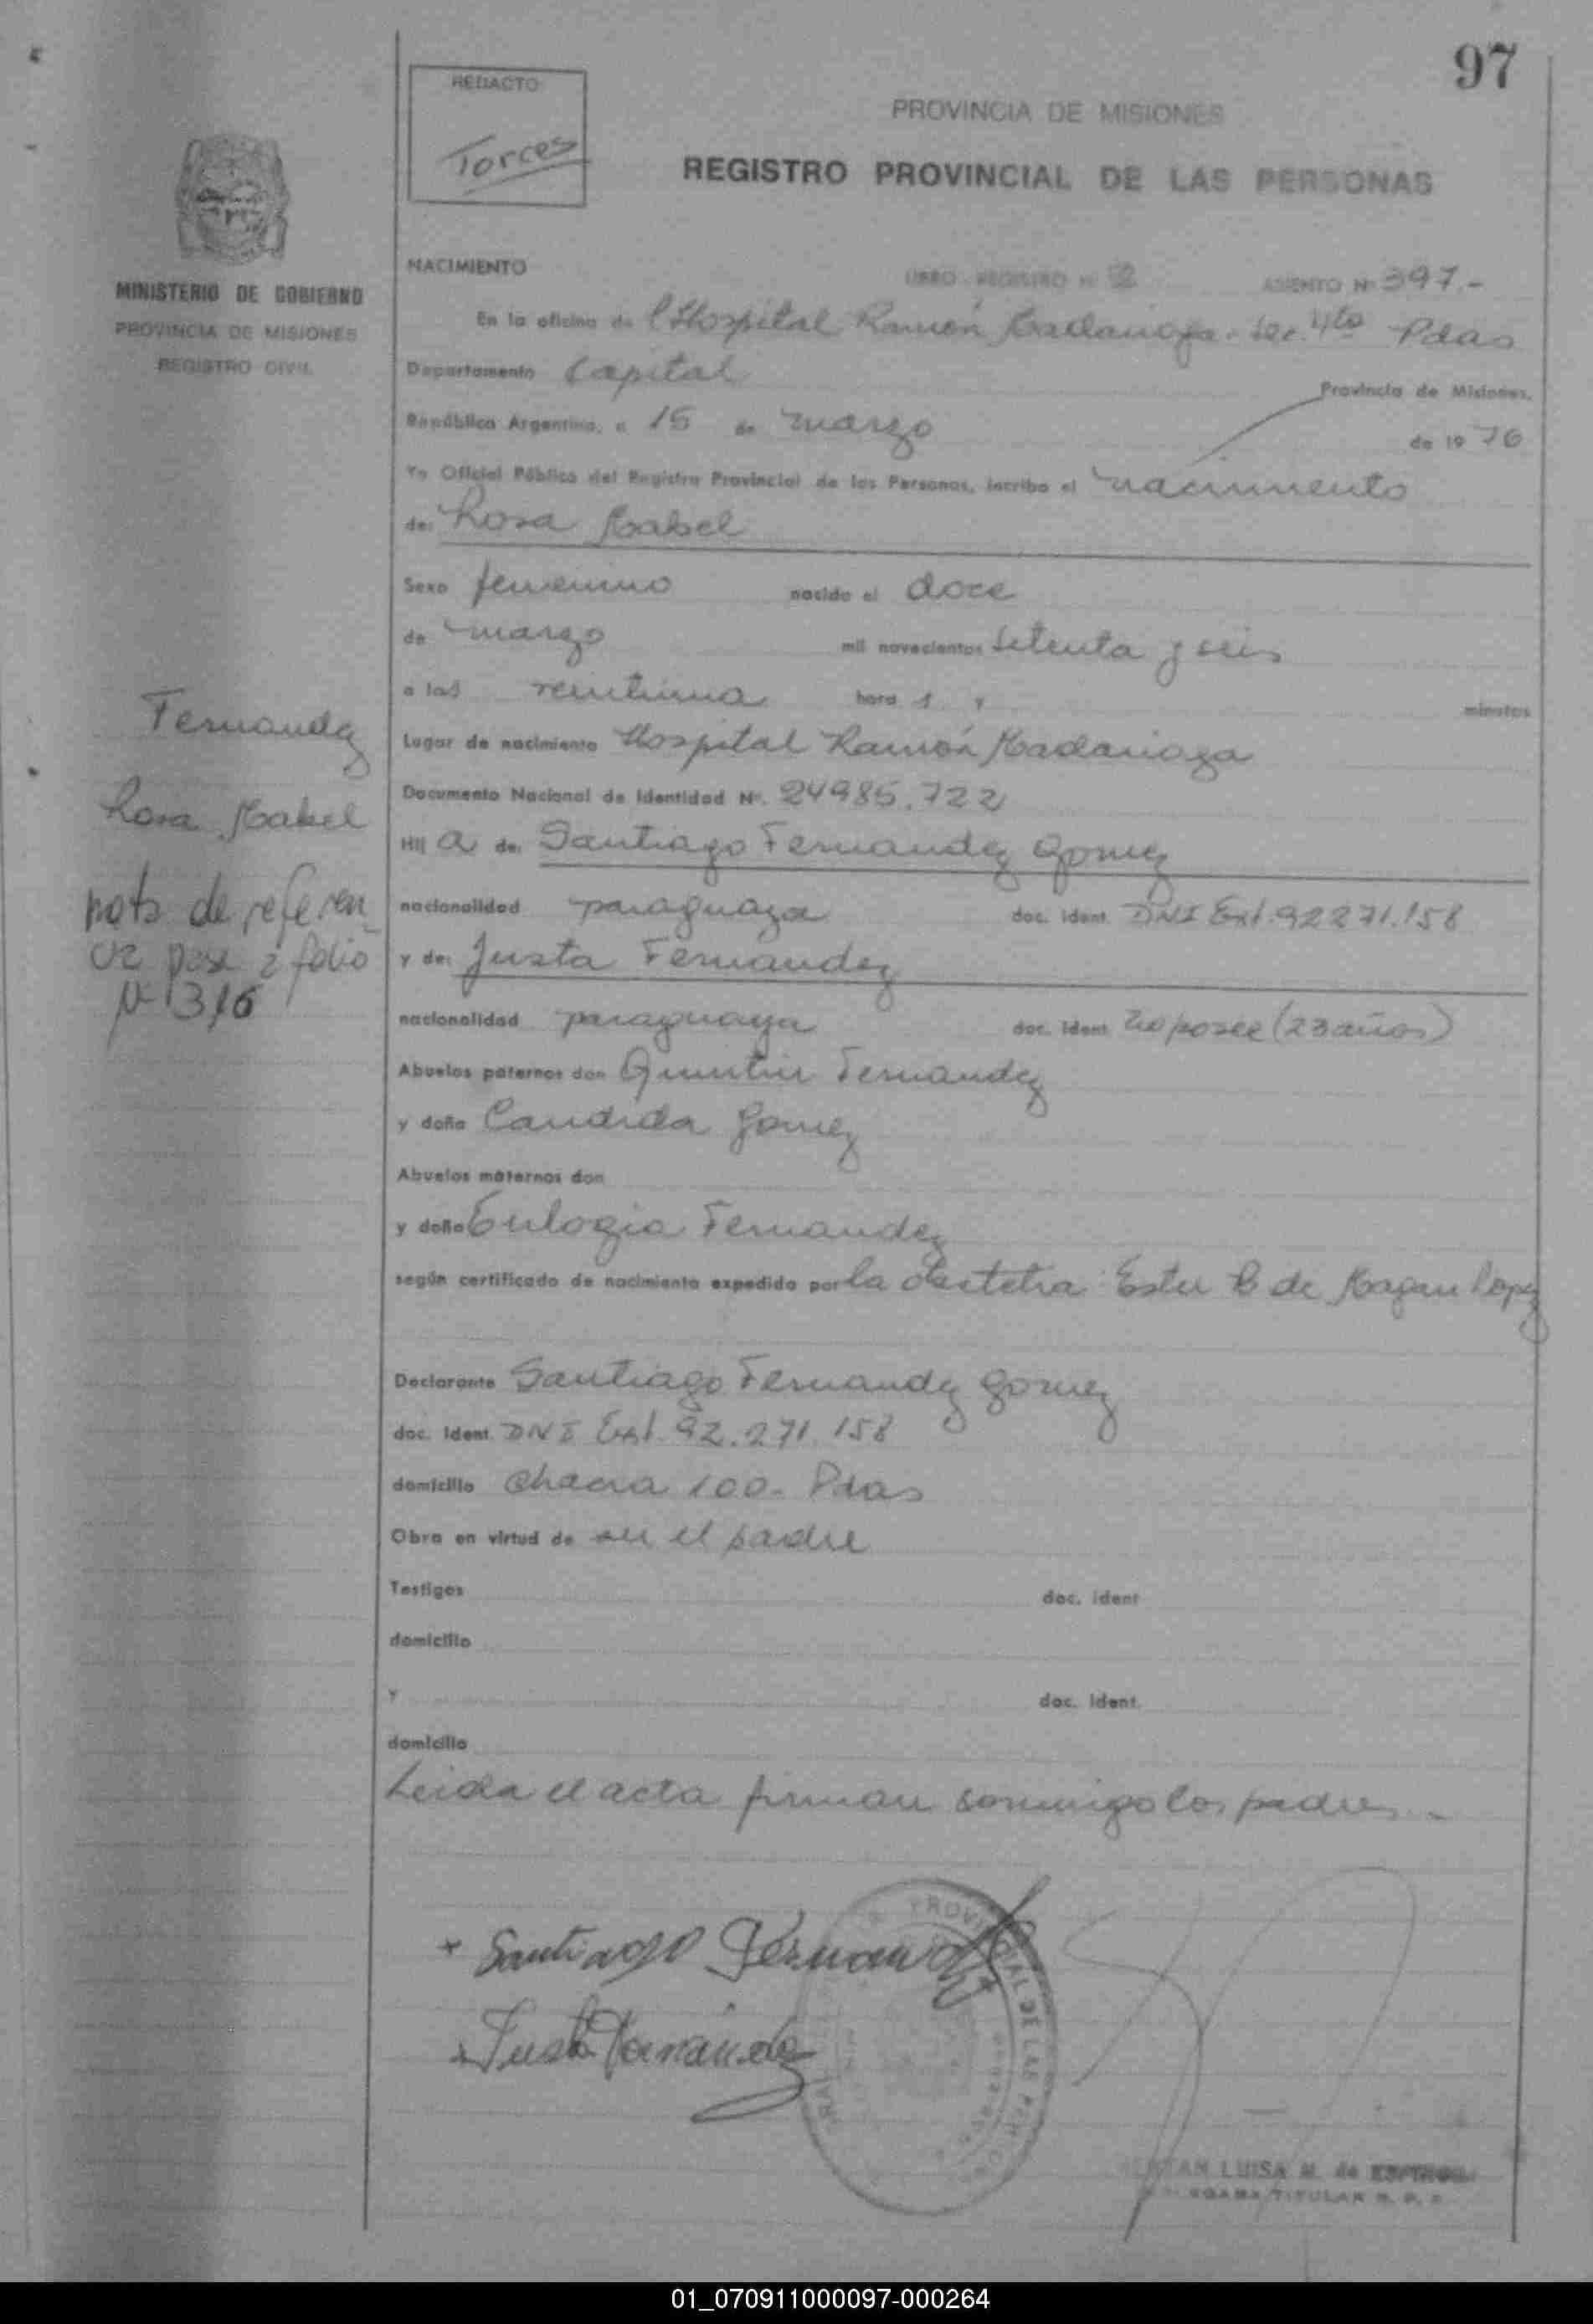 97
REDACTO
Torces
PROVINCIA DE MISIONES
REGISTRO PROVINCIAL DE LAS PERSONAS
MINISTERIO DE GOBIERNO
PROVINCIA DE MISIONES
REGISTRO CIVIL
NACIMIENTO LIBRO REGISTRO Nº 2 ASIENTO Nº 397.-
En la oficina de l Hospital Ramón Madariaga - Sec. 4ta Pdas
Departamento Capital Provincia de Misiones,
República Argentina, a 15 de marzo de 19 76
Yo Oficial Público del Registro Provincial de las Personas, incribo el nacimiento
de: Rosa Mabel
Sexo femenino nacido el doce
de marzo mil novecientos setenta y seis
a las veintiuna hora s y minutos
Lugar de nacimiento Hospital Ramón Madariaga
Documento Nacional de Identidad Nº. 24985.722
Hij a de: Santiago Fernandez Gomez
nacionalidad paraguaya doc. ident. DNI Ext. 92271.158
y de: Justa Fernandez
nacionalidad paraguaya doc. ident. no posee (23 años)
Abuelos paternos don Quintin Fernandez
y doña Candida Gomez
Abuelos maternos don
y doña Eulogia Fernandez
según certificado de nacimiento expedido por la obstetra Ester B de Lopez
Declarante Santiago Fernandez Gomez
doc. Ident. DNI Ext. 92.271.158
domicilio Chacra 100 - Pdas
Obra en virtud de ser el padre
Testigos doc. ident
domicilio
y doc. ident.
domicilio
Leida el acta firman conmigo los padres.-
Fernandez
Rosa Mabel
nota de referen
cia pase a folio
Nº 316
+ Santiago Fernandez
+ Justa Fernández
PROVINCIAL DE LAS
LUISA M. de
TITULAR R. P. P.
01_070911000097-000264